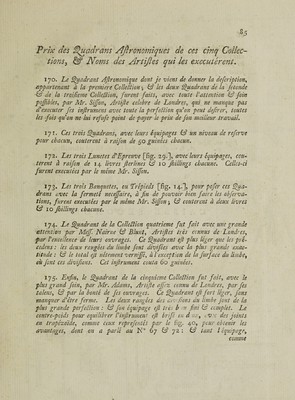 85
Prix des Quadrans Astronomiques de ces cinq Collec-
tions, & Noms des Artistes qui les executèrent.
170. Le Quadrant Astronomique dont je viens de donner la description,
appartenant à la premiere Collection, & les deux Quadrans de la seconde
& de la troisieme Collection, furent faits, avec toute l'attention & soin
possibles, par Mr. Sisson, Artiste celebre de Londres, qui ne manque pas
d'executer ses instruments avec toute la perfection qu'on peut desirer, toutes
les fois qu'on ne lui refuse point de payer le prix de son meilleur travail.
171. Ces trois Quadrans, avec leurs équipages & un niveau de reserve
pour chacun, conterent à raison de 90 guinées chacun.
172. Les trois Lunettes d'Epreuve (fig. 29.), avec leurs équipages, cou-
terent à raison de 14 livres sterlines & 10 shillings chacune. Celles-ci
furent executées par le même Mr. Sisson.
173. Les trois Banquetes, ou Trépieds (fig. 14.), pour poser ces Qua-
drans avec la fermeté necessaire, à fin de pouvoir bien faire les observa-
tions, furent executées par le même Mr. Sisson, & couterent à deux livres
& 10 shillings chacune.
174. Le Quadrant de la Collection quatrieme fut fait avec une grande
attention par Mess. Nairne & Blunt, Artistes très connus de Londres,
par l'excellence de leurs ouvrages. Ce Quadrant est plus leger que les pré-
cedens: les deux rangées du limbe sont divisées avec la plus grande exac-
titude: & le total est nétement vernissé, à l'exception de la surface du limbe,
où sont les divisions. Cet instrument couta 60 guinées.
175. Enfin, le Quadrant de la cinquième Collection fut fait, avec le
plus grand soin, par Mr. Adams, Artiste assez connu de Londres, par ses
talens, & par la bonté de ses ouvrages. Ce Quadrant est fort leger, sans
manquer d'être ferme. Les deux rangées des divisions du limbe sont de la
plus grande perfection: & son équipage est très bien fini & complet. Le
contre-poids pour équilibrer l'instrument est brisé en deux, avec des joints
en trapézoïde, comme ceux representés par la fig. 40, pour obtenir les
avantages, dont on a parlé au Nº 67 & 72: & tout l'équipage,
comme